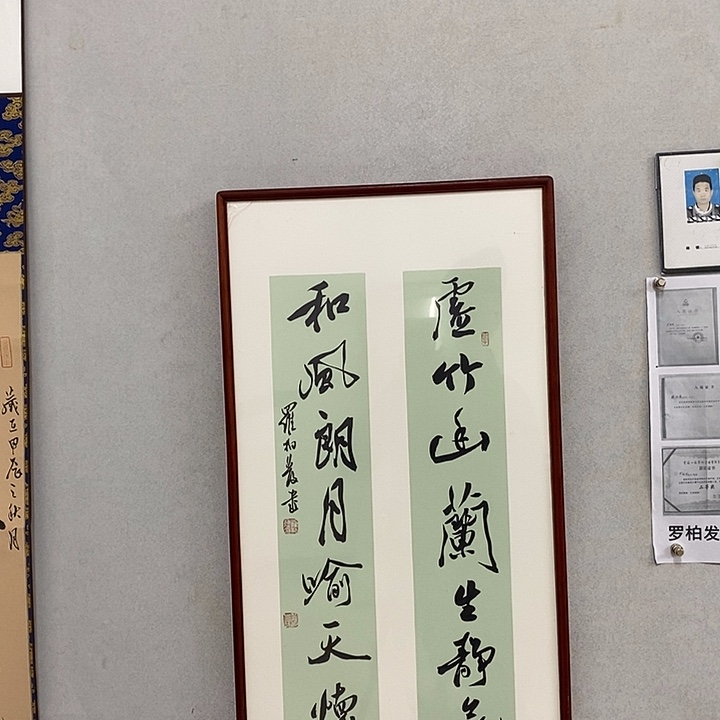 虛竹幽蘭生靜氣
和風朗月喻天懷
羅柏發書
歲在甲辰之秋月
罗柏发